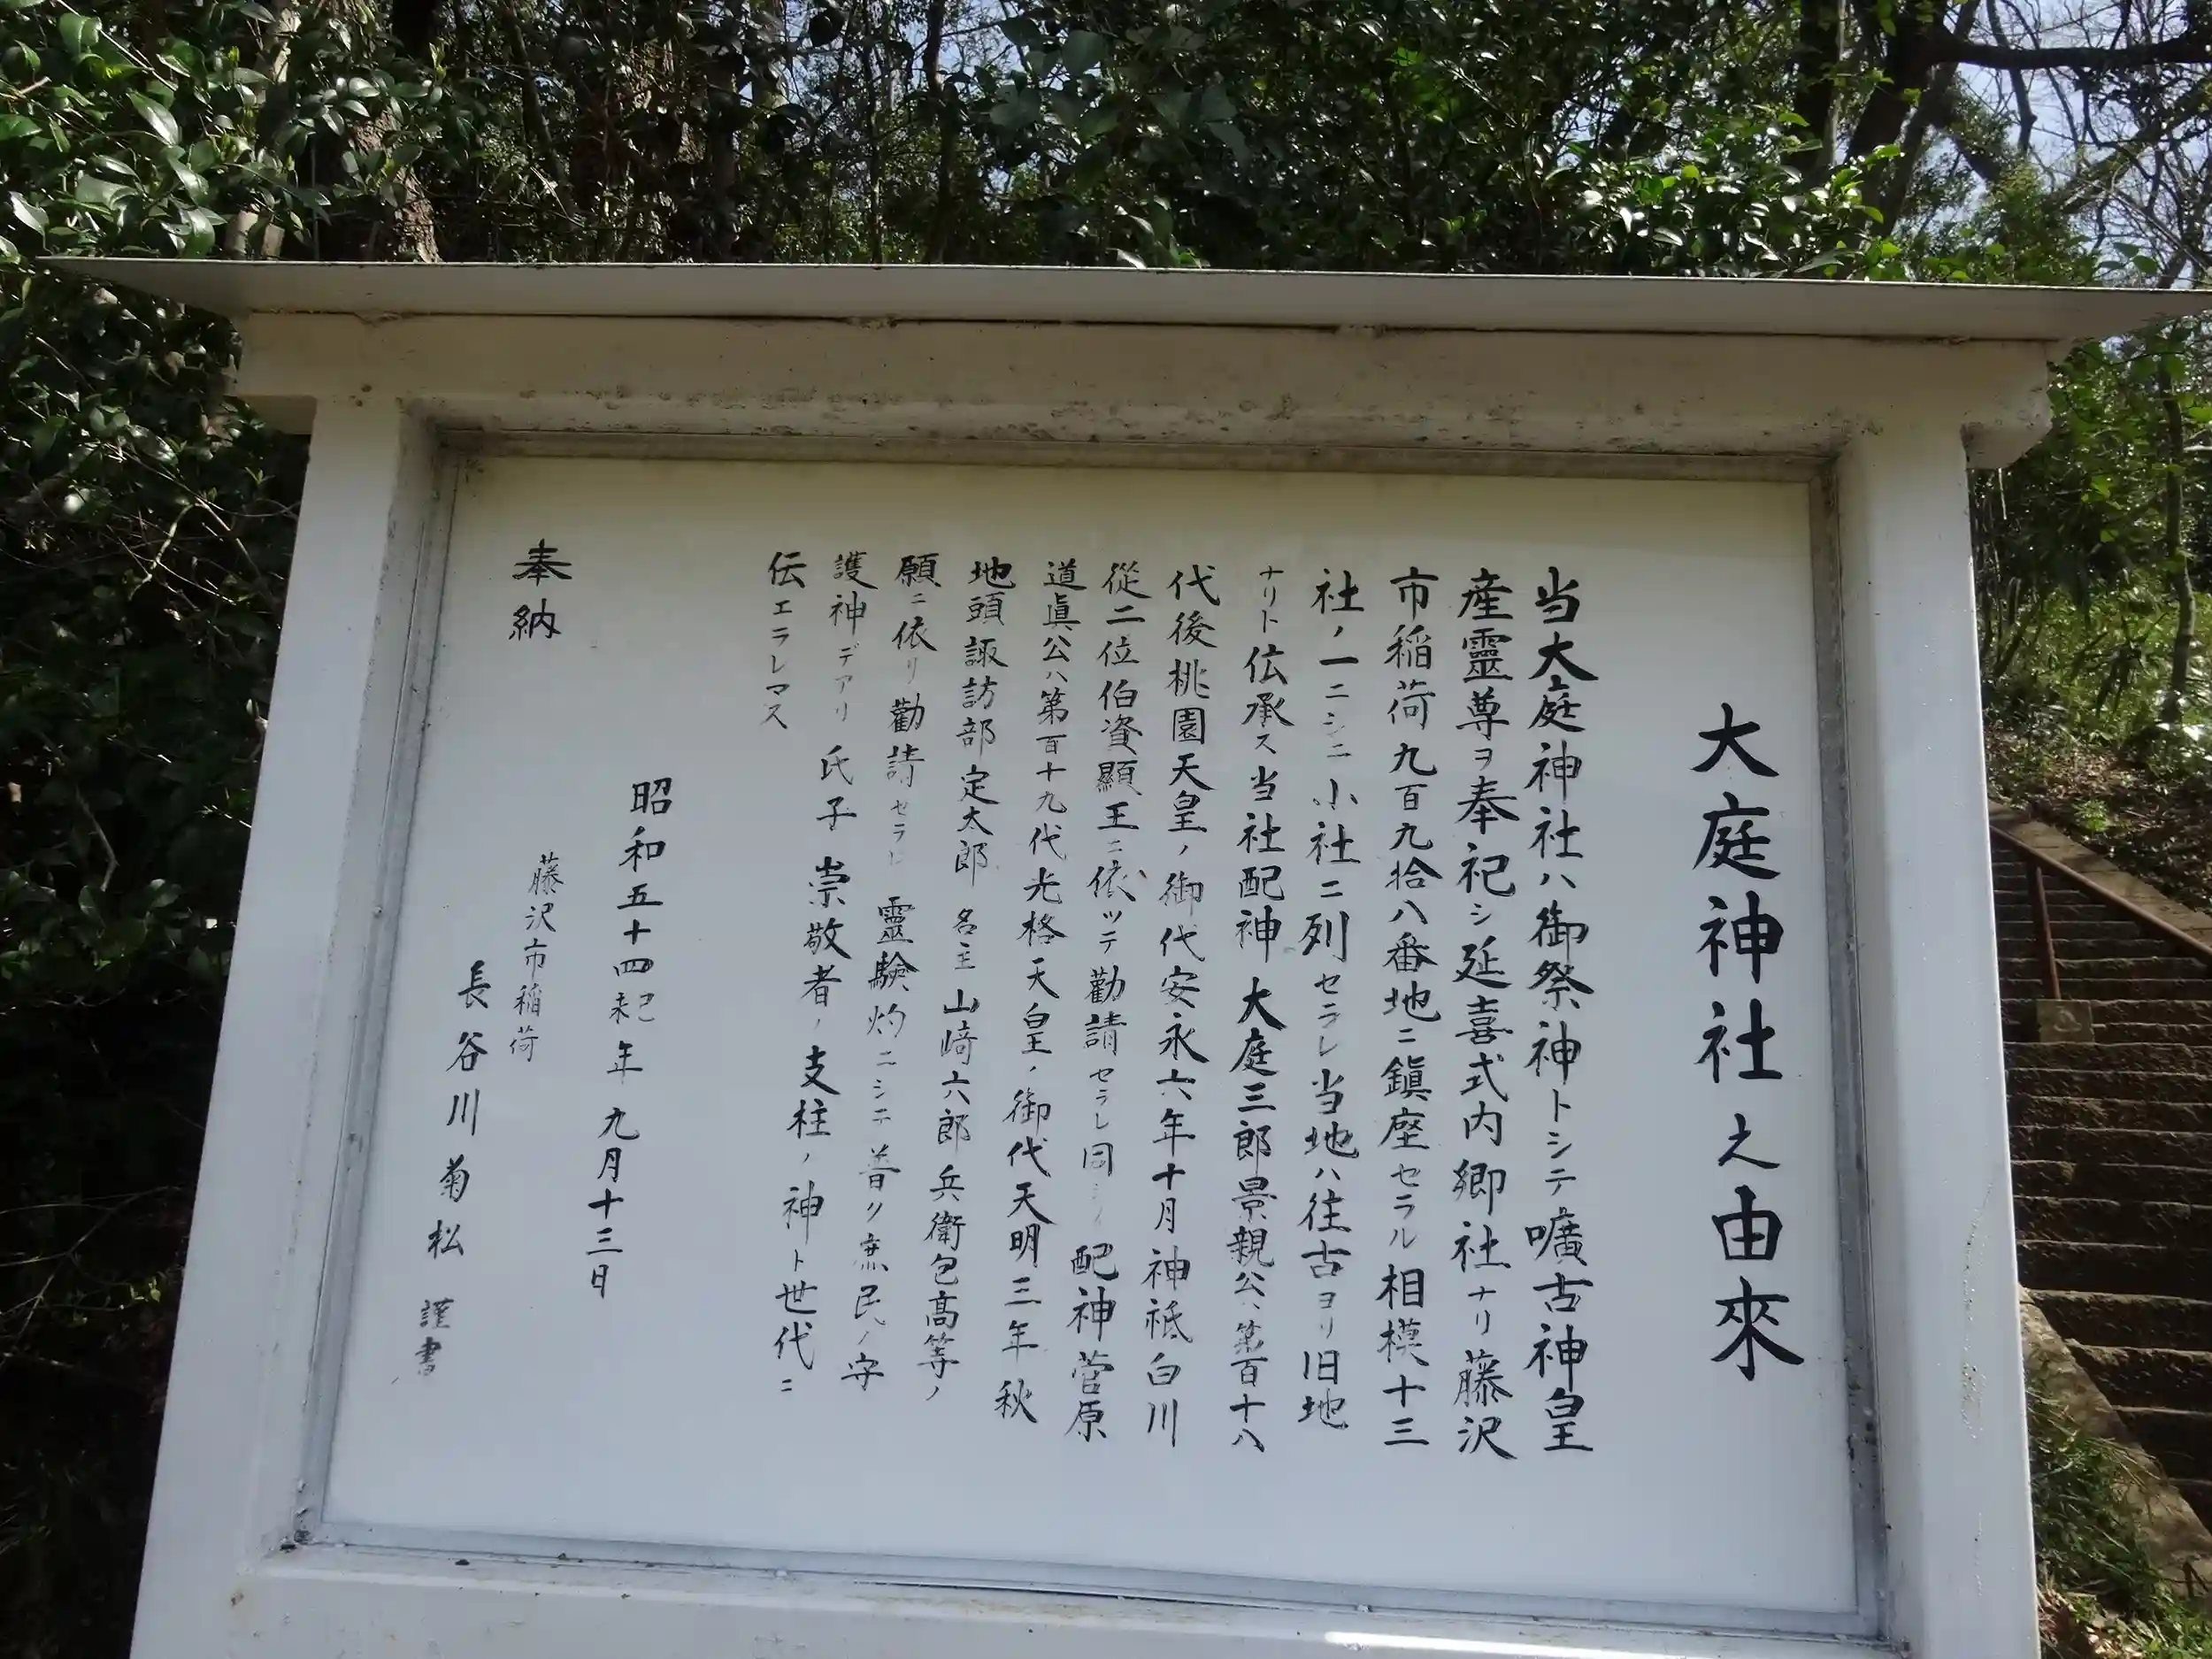 大庭神社之由來
当大庭神社ハ御祭神トシテ嚝古神皇
産靈尊ヲ奉祀シ延喜式内郷社ナリ藤沢
市稲荷九百九拾八番地ニ鎭座セラル相模十三
社ノ一ニシニ小社ニ列セラレ当地ハ往古ヨリ旧地
ナリト伝承ス当社配神大庭三郎景親公ハ第百十八
代後桃園天皇ノ御代安永六年十月神祗白川
従二位伯資顯王ニ依ツテ勸請セラレ同シク配神菅原
道眞公ハ第百十九代光格天皇ノ御代天明三年秋
地頭諏訪部定太郎名主山﨑六郎兵衛包髙等ノ
願ニ依リ勸請セラレ靈験灼ニシテ普ク庶民ノ守
護神デアリ氏子崇敬者ノ支柱ノ神ト世代ニ
伝エラレマス
昭和五十四己未年九月十三日
奉納
藤沢市稲荷
長谷川菊松謹書